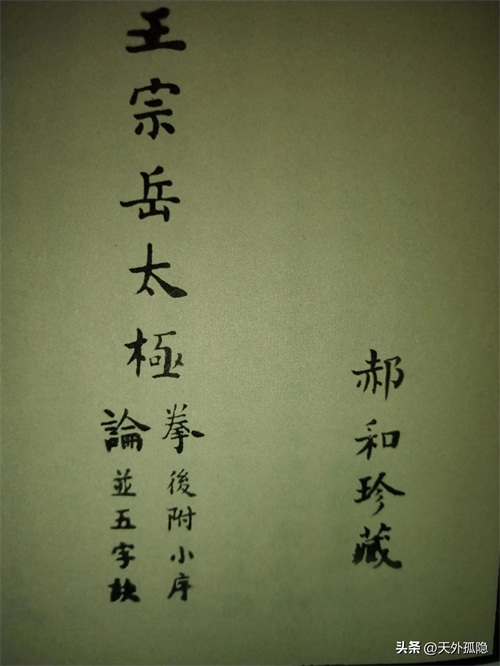 郝和珍藏
王宗岳太極
拳後附小序
論並五字訣
头条@天外孤隐